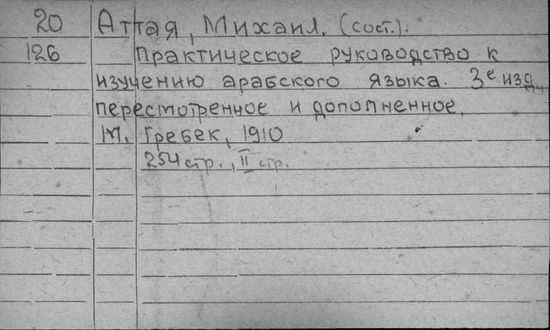 20 Аттая, Михаил. (сост.).
126 Практическое руководство к
изучению арабского языка. 3е изд.,
пересмотренное и дополненное,
М., Гребек, 1910
254 стр., II стр.